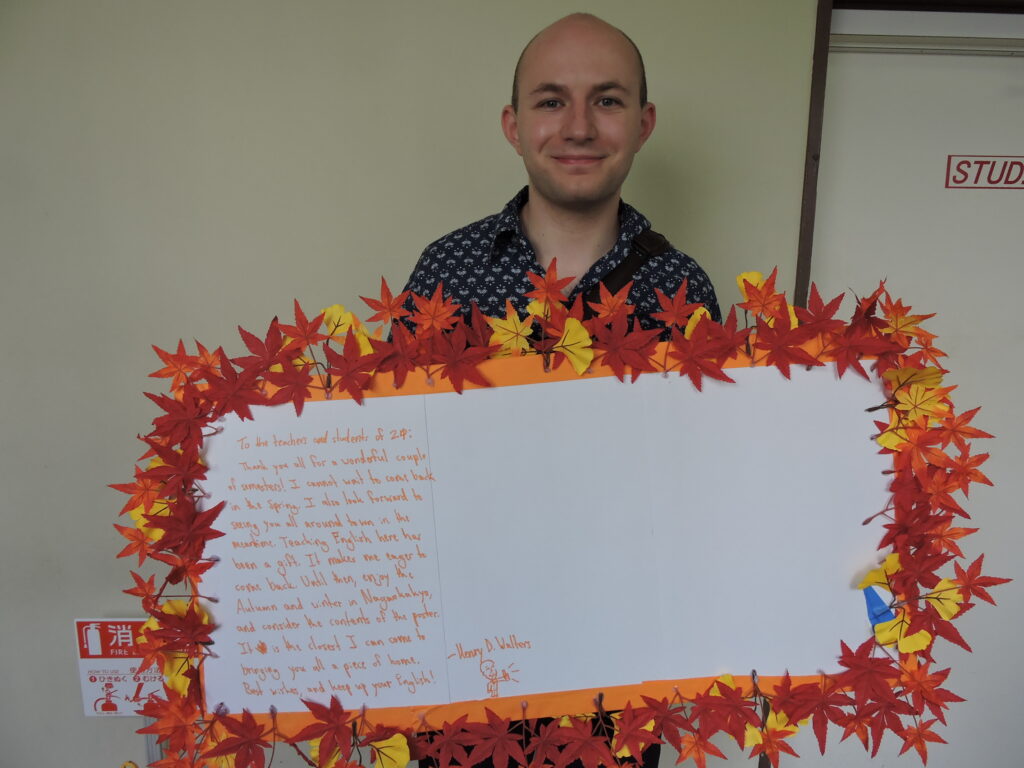 To the teachers and students of 2Φ:
Thank you all for a wonderful couple
of semesters! I cannot wait to come back
in the spring. I also look forward to
seeing you all around town in the
meantime. Teaching English here has
been a gift. It makes me eager to
come back. Until then, enjoy the
Autumn and winter in Nagaokakyo,
and consider the contents of the poster.
It is the closest I can come to
bringing you all a piece of home.
Best wishes, and keep up your English!
-Henry D. Walters
STUD
消
FIRE
HOW TO USE 使
1 ひきぬく 2 むける